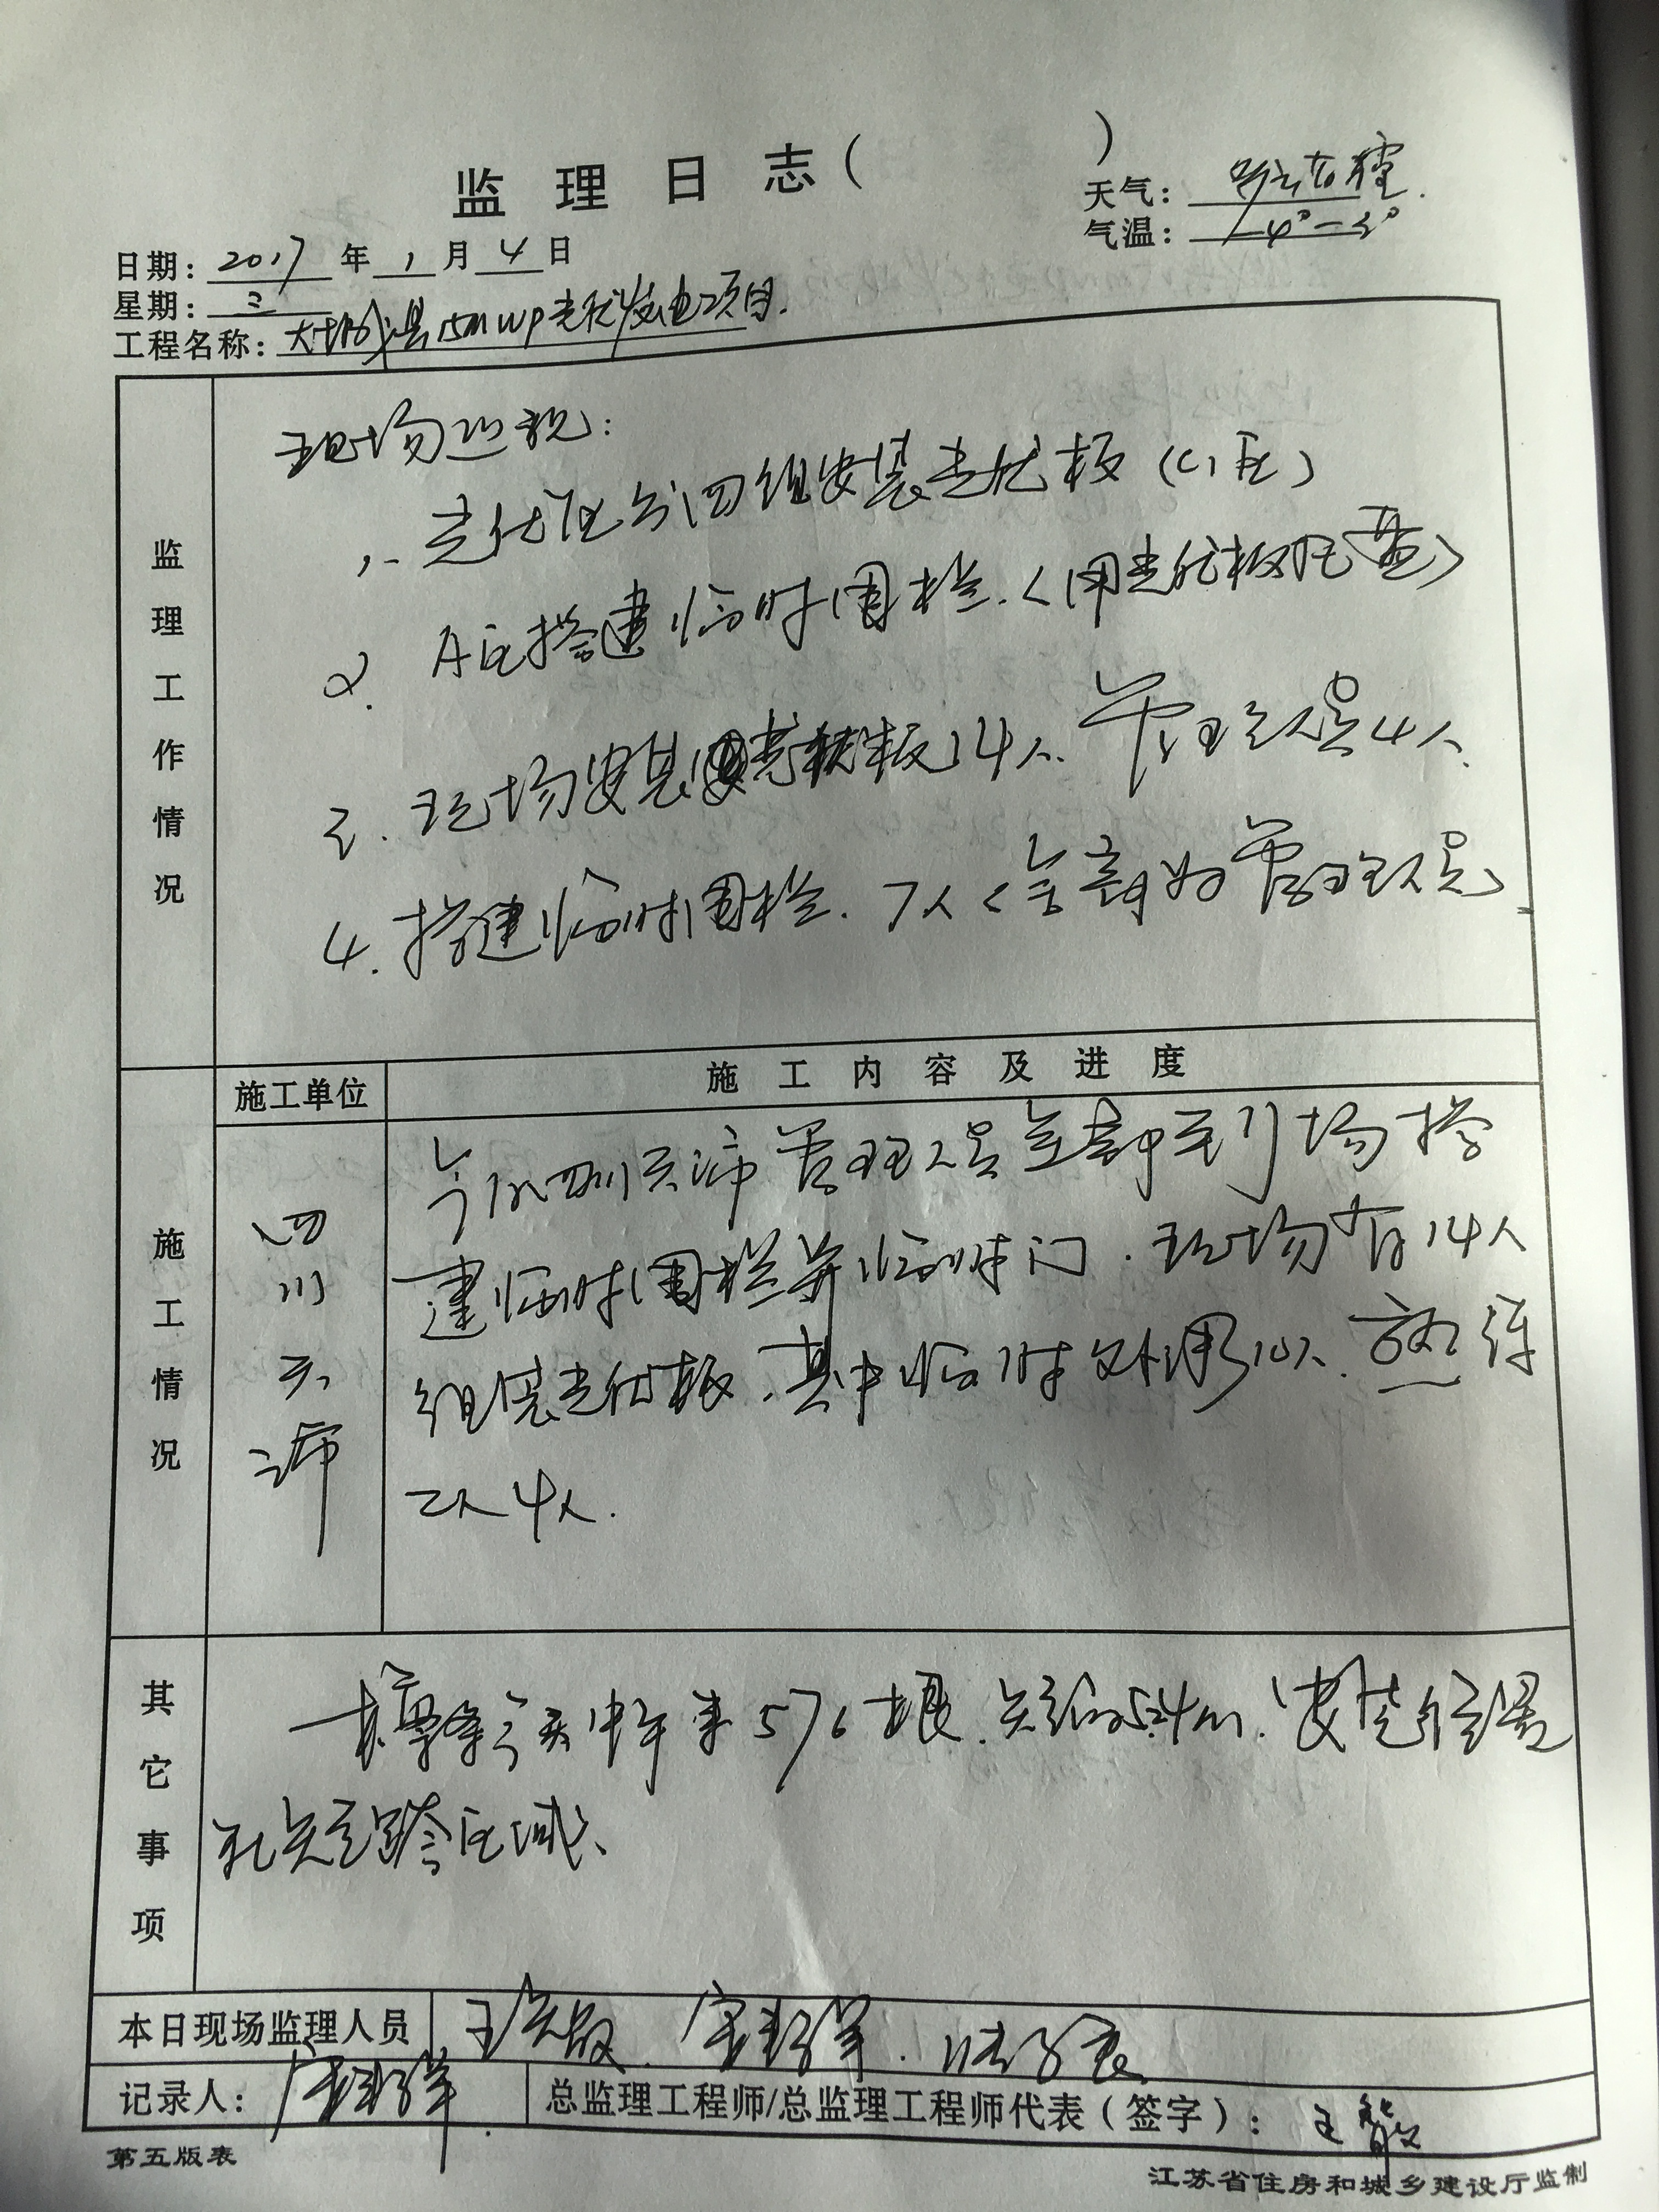 监理日志（ ）
天气：
气温：-4°-3°
日期：2017年1月4日
星期：三
工程名称：大 县15MWP光伏发电项目.
监理工作情况
现场巡视：
1、光伏区分四组安装光伏板（C1区）
2. A区搭建临时围栏.（用光伏板托盘）
3. 现场安装光伏板14人. 管理人员4人、
4. 搭建临时围栏. 7人（全部为管理人员）
施工情况
施工单位
施工内容及进度
四川天
今 四川天 管理人员全部到场搭
建临时围栏并临时门. 现场有14人
组装光伏板. 其中临时外用10人、熟练
工人4人.
其它事项
今天中午来576根. 长约5.4m. 安装位置
在 跨区域、
本日现场监理人员
记录人：
总监理工程师/总监理工程师代表（签字）：王
第五版表
江苏省住房和城乡建设厅监制